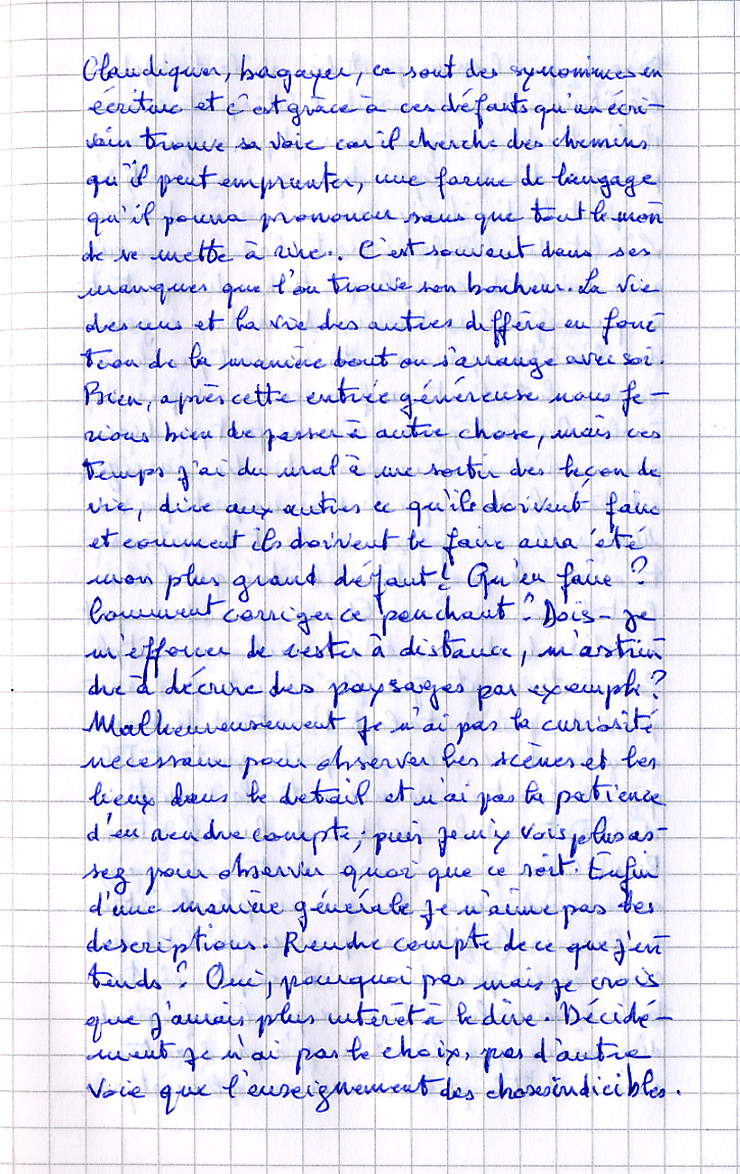 Claudiquer, bagayer, ce sont des synonimes en
écriture et c'est grâce à ces défauts qu'un écri-
vain trouve sa voie car il cherche des chemins
qu'il peut emprunter, une forme de langage
qu'il pourra prononcer sans que tout le mon
de se mette à rire.. C'est souvent dans ses
manques que l'on trouve son bonheur. La vie
des uns et la vie des autres diffère en fonc
tion de la manière dont on s'arrange avec soi.
Bien, après cette entrée généreuse nous fe-
rions bien de passer à autre chose, mais ces
temps j'ai du mal à me sortir des leçon de
vie, dire aux autres ce qu'ils doivent faire
et comment ils doivent le faire aura été
mon plus grand défaut! Qu'en faire ?
Comment corriger ce penchant ? Dois-je
m'efforcer de rester à distance, m'astrein
dre à décrire des paysages par exemple ?
Malheureusement je n'ai pas la curiosité
necessaire pour observer les scènes et les
lieux dans le detail et n'ai pas la patience
d'en rendre compte; puis je n'y vois plus as-
sez pour observer quoi que ce soit. Enfin
d'une manière générale je n'aime pas les
descriptions. Rendre compte de ce que j'en
tends ? Oui, pourquoi pas mais je crois
que j'aurais plus interêt à le dire. Décidé-
ment je n'ai pas le choix, pas d'autre
voie que l'enseignement des choses indicibles.